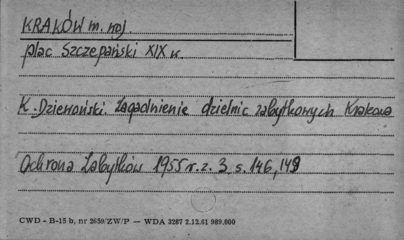 KRAKÓW m. woj.
plac Szczepański XIX w.
K. Dziewoński. Zagadnienie dzielnic zabytkowych Krakowa
Ochrona Zabytków 1955 r. z. 3 s. 146, 149
CWD - B-15 b, nr 2659/ZW/P — WDA 3287 2.12.61 989.000